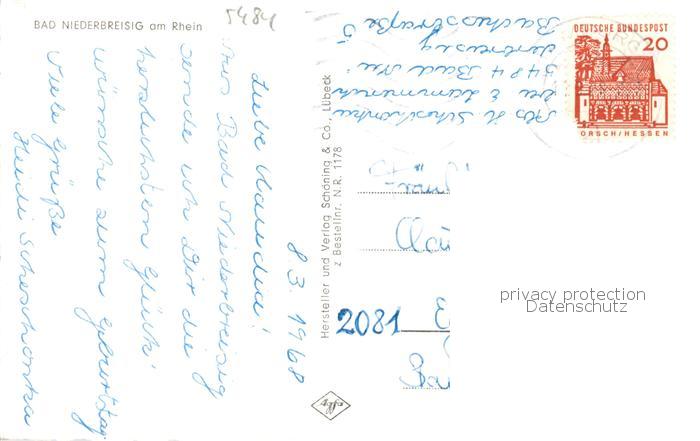 BAD NIEDERBREISIG am Rhein
5484
8.3.1968
Liebe Claudia!
Aus Bad Niederbreisig
sende ich Dir die
herzlichsten Glück-
wünsche zum Geburtstag
Viele Grüße
Heidi
Hersteller und Verlag Schöning & Co., Lübeck
z Bestellnr. N.R. 1178
Agfa
Abs H
5484 Bad Nie-
derbreisig
Bachstraße 5
DEUTSCHE BUNDESPOST
20
LORSCH/HESSEN
2081
privacy protection
Datenschutz